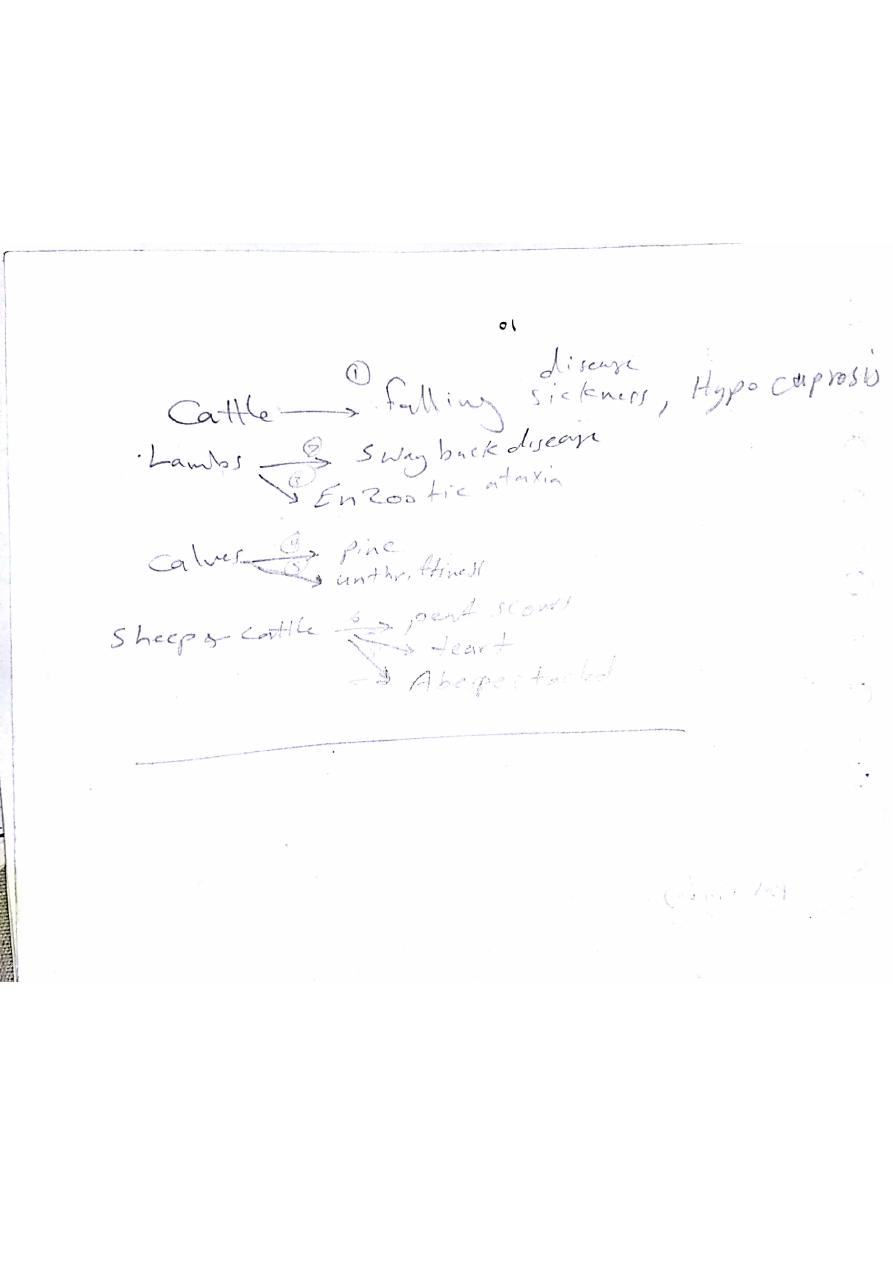 01
① disease
Cattle → falling sickness, Hypocuprosis
Lambs ② → Sway back disease
③ → Enzootic ataxia
Calves ④ → pine
⑤ → unthriftiness
Sheep & cattle 6 → peat scours
→ teart
→